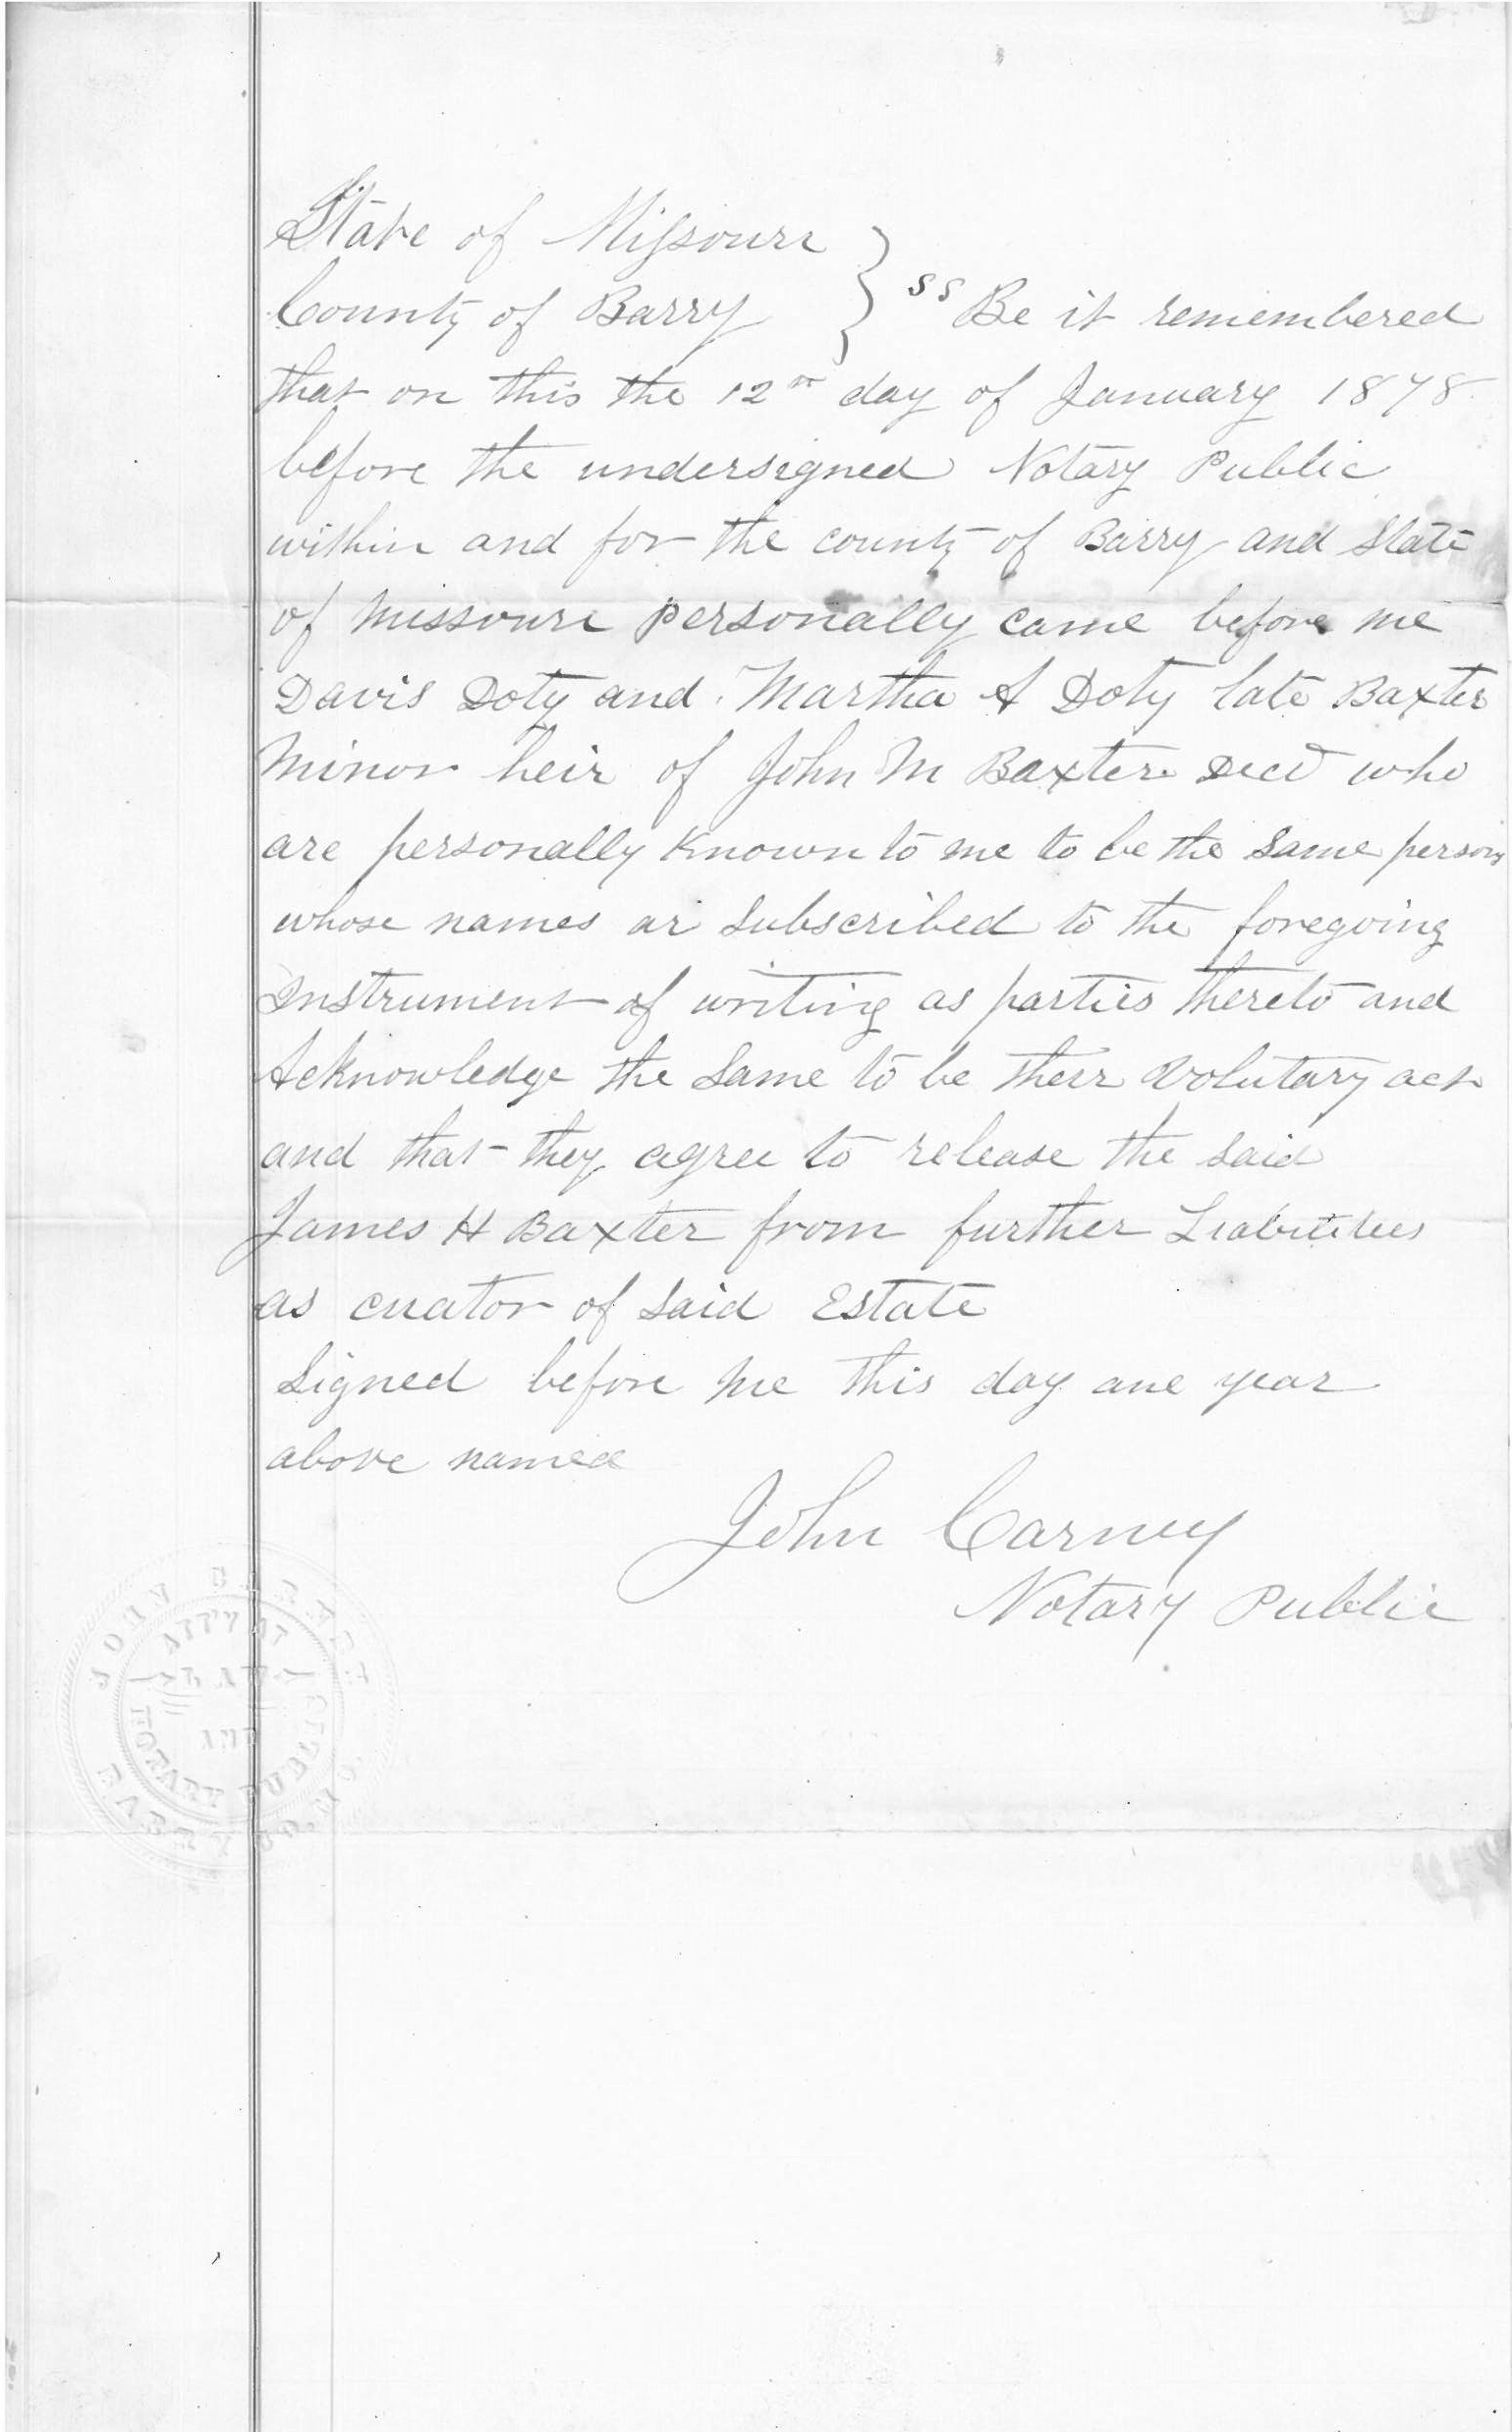 State of Missouri
County of Barry } ss Be it remembered
that on this the 12th day of January 1878
before the undersigned Notary Public
within and for the county of Barry and State
of Missouri personally came before me
Davis Doty and Martha A Doty late Baxter
Minor heir of John M Baxter Decd who
are personally Known to me to be the Same persons
whose names ar Subscribed to the foregoing
Instrument of writing as parties thereto and
Acknowledge the Same to be their Volutary act
and that they agree to release the Said
James H Baxter from further Liabilities
as cuator of Said Estate
Signed before me this day ane year
above named
John Carney
Notary Public
JOHN
ATTY AT
LAW
AND
NOTARY PUBLIC
BARRY CO. MO.